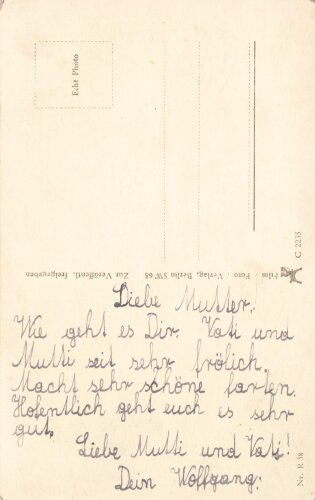 Echt Photo
Film-Foto-Verlag, Berlin SW 68
Zur Veröffentl. freigegeben
C 2235
Nr. R 38
Liebe Mutter!
Wie geht es Dir. Vati und
Mutti seit sehr frölich.
Macht sehr schöne farten.
Hofentlich geht euch es sehr
gut.
Liebe Mutti und Vati!
Dein Wolfgang.